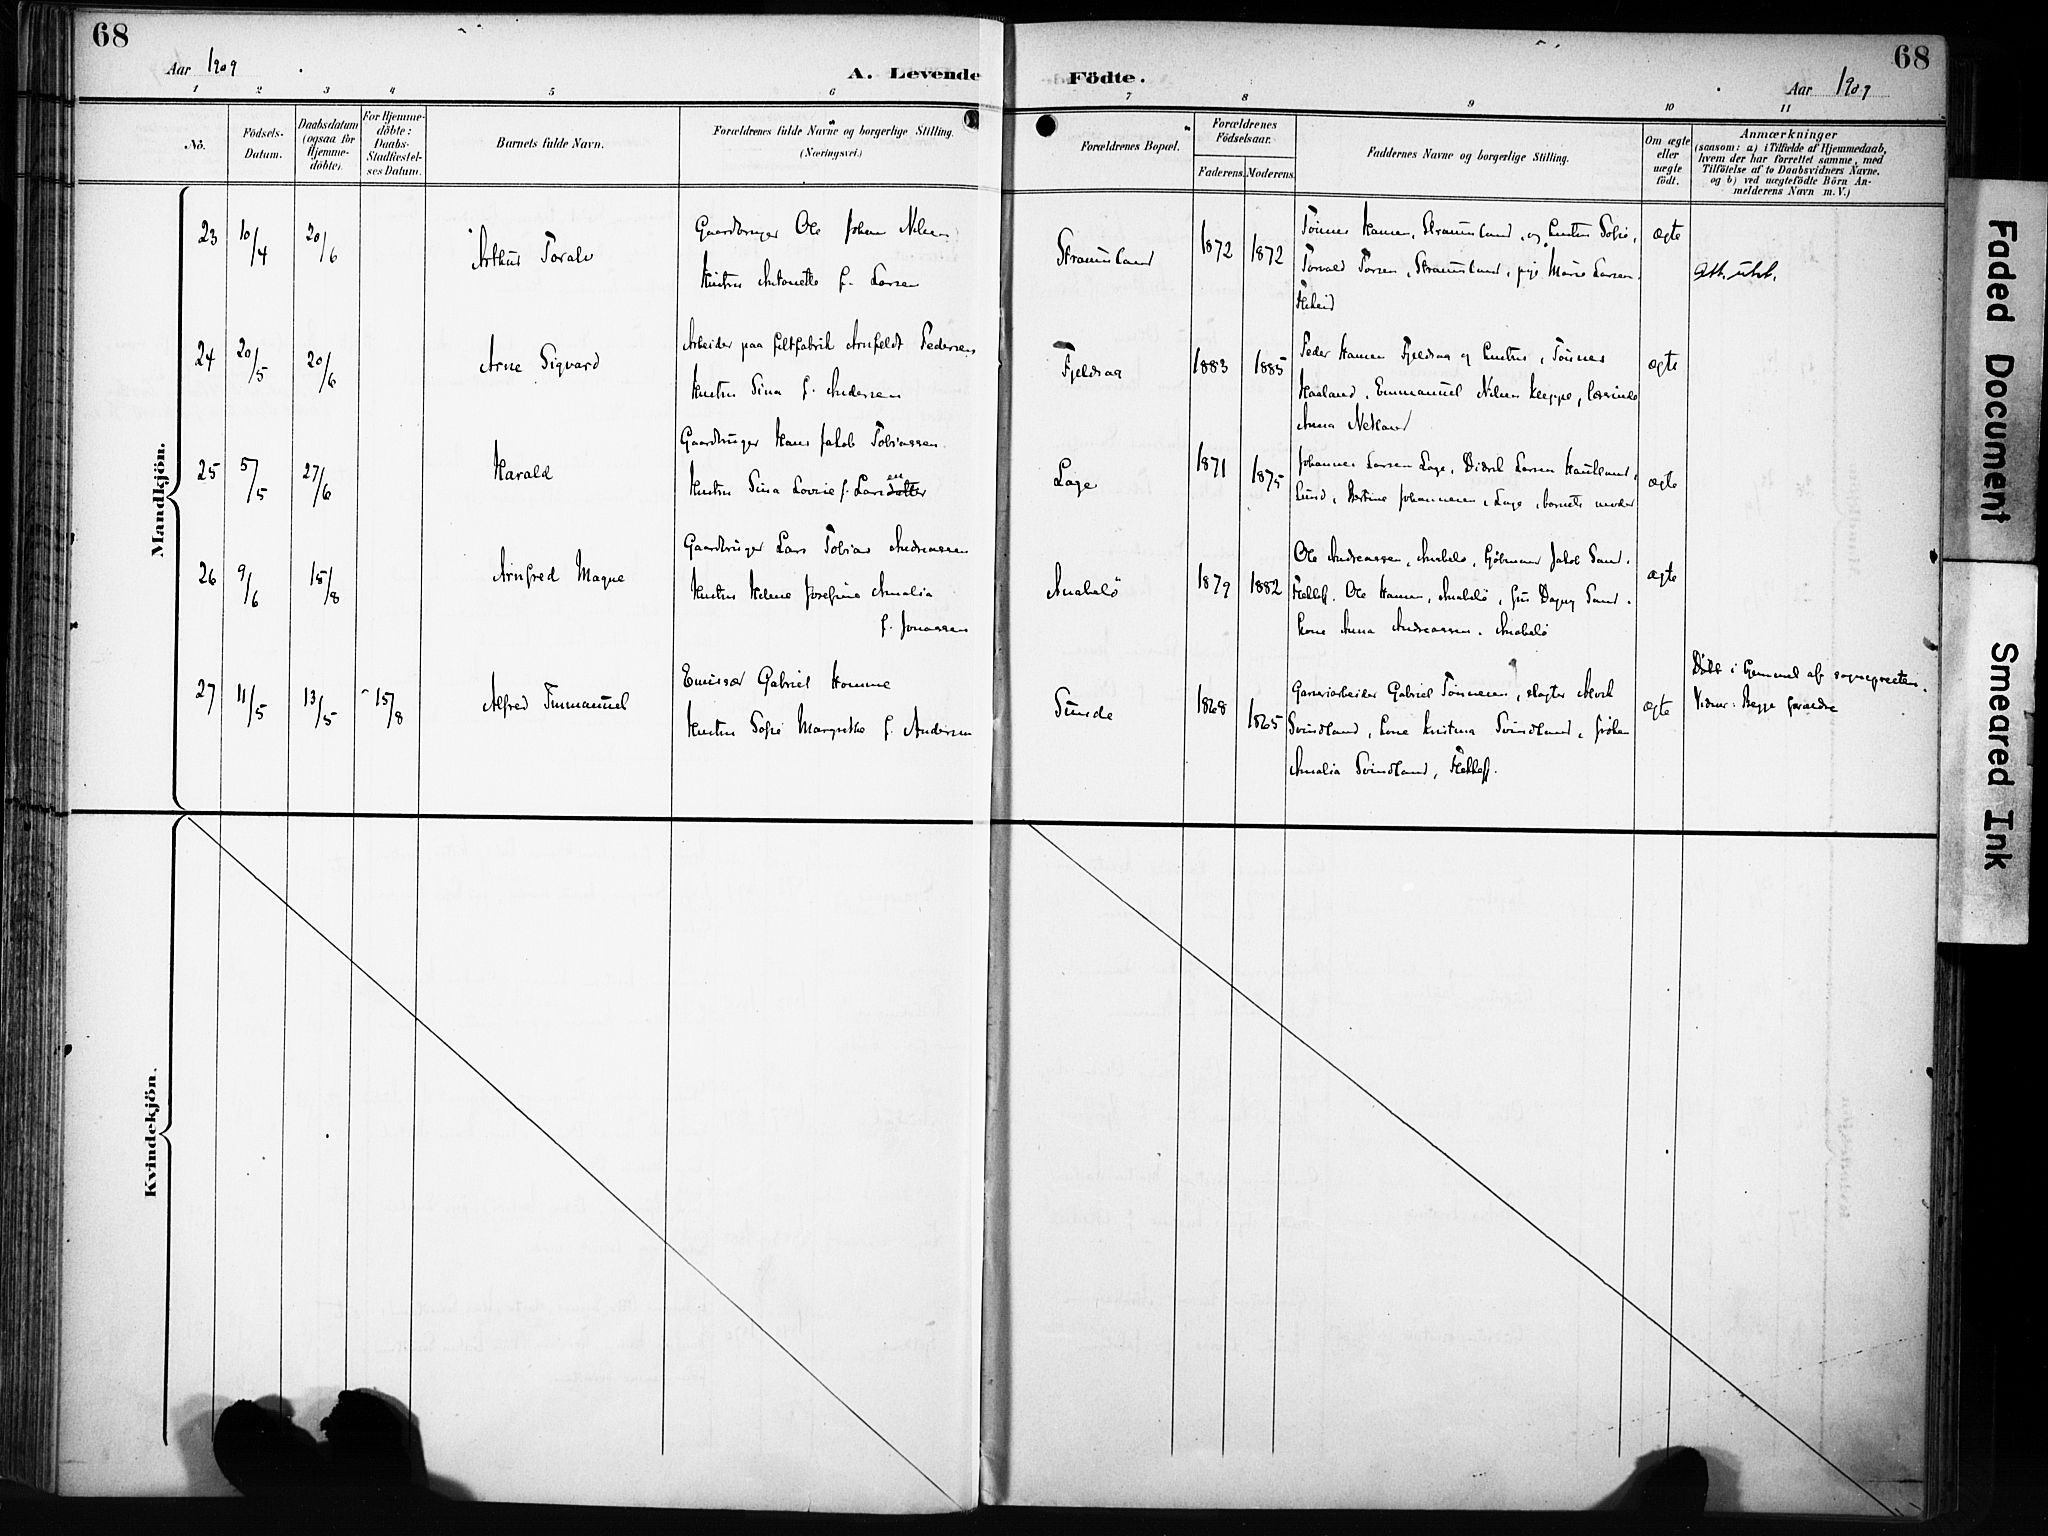 68
68
Aar 1909
A. Levende Födte.
Aar 1909
1 2 3 4 5 6 7 8 9 10 11
Nö.
Födsels-Datum.
Daabsdatum (ogsaa för Hjemme-döbte).
For Hjemme-döbte: Daabs-Stadfæstel-ses Datum.
Barnets fulde Navn.
Forældrenes fulde Navne og borgerlige Stilling.
(Næringsvei.)
Forældrenes Bopæl.
Forældrenes Födselsaar.
Faderens. Moderens.
Faddernes Navne og borgerlige Stilling.
Om ægte eller uægte födt.
Anmærkninger
(saasom: a) i Tilfælde af Hjemmedaab, hvem der har forrettet samme, med Tilföielse af to Daabsvidners Navne, og b) ved uægtefödte Börn An-melderens Navn m. V.)
Mandkjön.
23 10/4 20/6 Arthur Toralv
Gaardbruger Ole Johan Nilsen
Hustru Antonette f. Larsen
Straumland 1872 1872
Tønnes Hansen, Straumland, og hustru Sofie,
Torvald Torsen, Straumland, pige Marie Larsen.
ægte
Att. utst.
24 20/5 20/6 Arne Sigvard
Arbeider paa filtfabrik Arnfeldt Pedersen
Hustru Sina f. Andersen
Fjeldsaa 1883 1885
Peder Hansen Fjeldsaa og hustru, Tønnes
Haaland, Emmanuel Nilsen
Anna Netland
ægte
25 5/5 27/6 Harald
Gaardbruger Hans Jakob Tobiassen
Hustru Sina Lovise f. Larsdatter en
Lage 1871 1875
Johannes Larsen Lage, Didrik Larsen
Lund, Bertine Johannesen, Lage, barnets moder
ægte
26 9/6 15/8 Arnfred Magne
Gaardbruger Lars Tobias Andreassen
Hustru Helene Josefine Amalia
f. Jonassen
Anabelö 1879 1882
Ole Andreassen, Anabelö, Kjøbmand Jakob Sand,
Flekkefj. Ole Hansen, Anabelö, frü Dagny Sand.
kone Anna Andreassen. Anabelö
ægte
27 11/5 13/5 15/8 Alfred Emmanuel
Emissær Gabriel Homme
Hustru Sofie Margrethe f. Andersen
Sunde 1868 1865
Garveriarbeider Gabriel Tønnesen, slagter
Svindland, kone Kristina Svindland, frøken
Amalia Svindland, Flekkefj.
ægte
Döbt i hjemmet af sognepresten.
Vidner: Begge forældre
Kvindekjön.
Faded Document
Smeared Ink